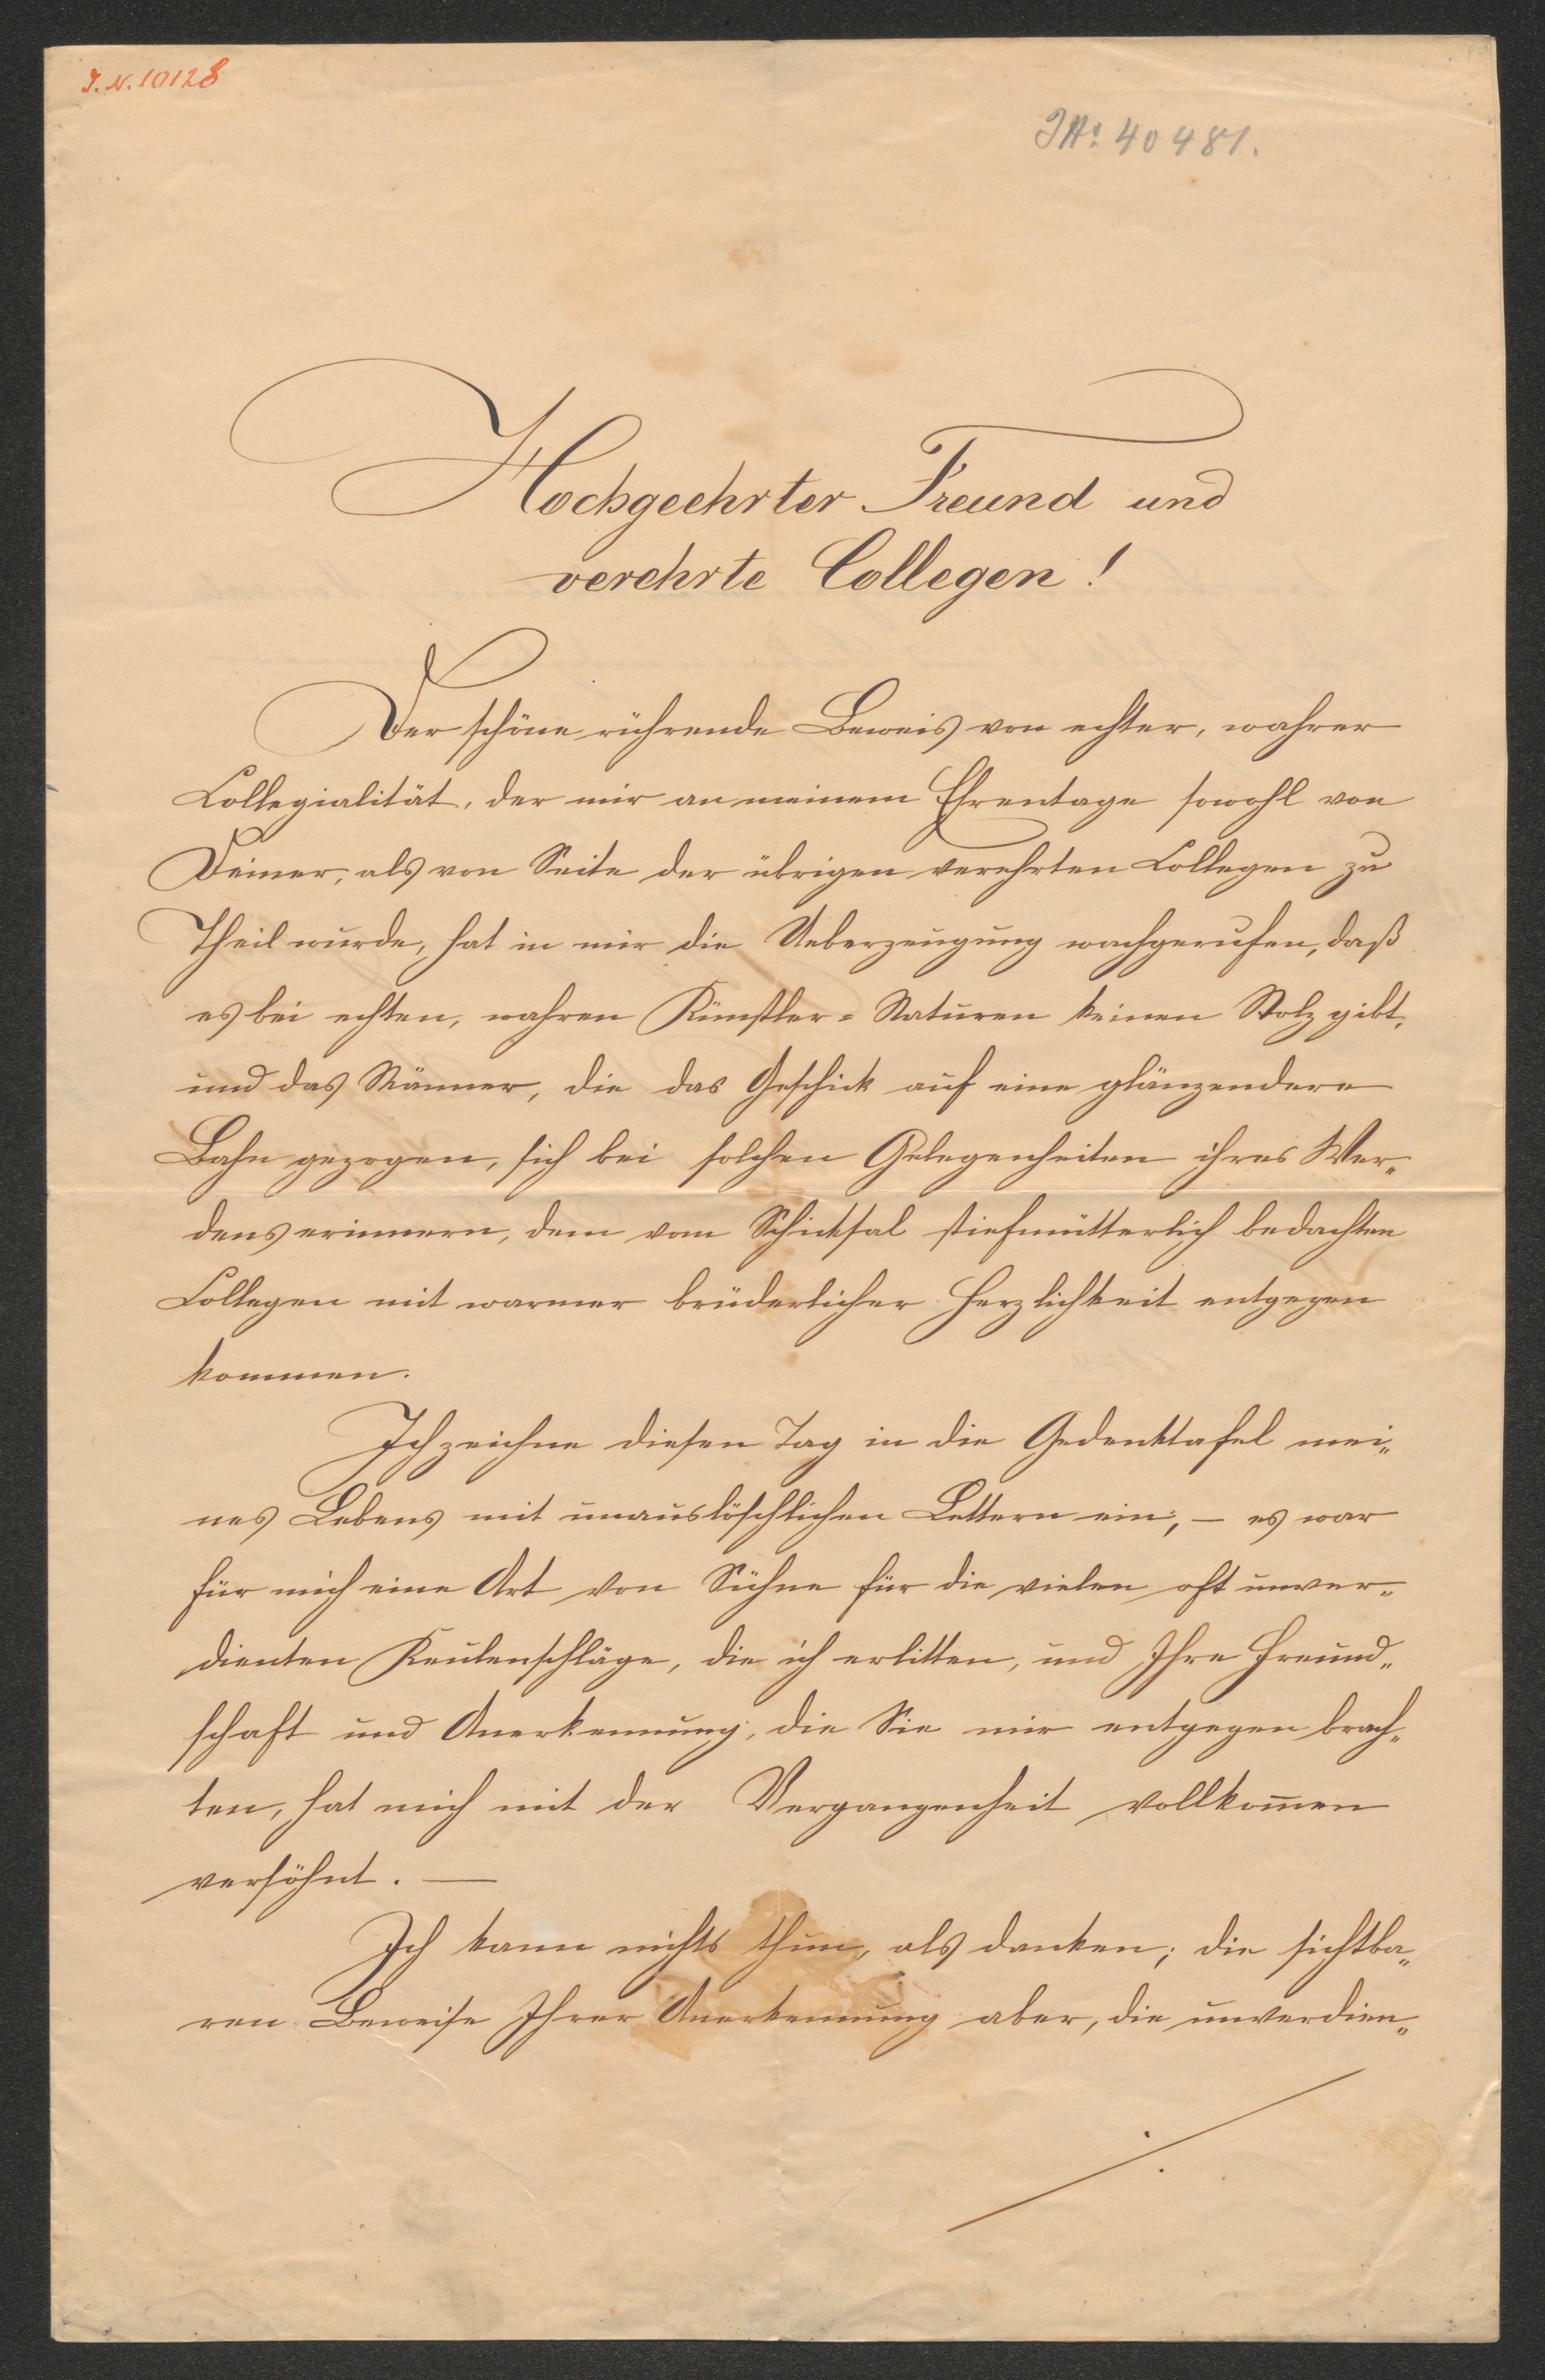 I. N. 10128
JN: 40481.
Hochgeehrter Freund und
verehrte Collegen!
Der schöne rührende Beweis von echter, wahrer
Collegialität, der mir an meinem Ehrentage sowohl von
Deiner, als von Seite der übrigen verehrten Collegen zu
Theil wurde, hat in mir die Ueberzeugung wachgerufen, daß
es bei echten, wahren Künstler-Naturen keinen Stolz gibt,
und das Männer, die das Geschick auf eine glänzendere
Bahn gezogen, sich bei solchen Gelegenheiten ihres Wer„
dens erinnern, dem vom Schicksal stiefmütterlich bedachten
Collegen mit warmer brüderlicher Herzlichkeit entgegen
kommen.
Ich zeichne diesen Tag in die Gedenktafel mei„
nes Lebens mit unauslöschlichen Lettern ein, – es war
für mich eine Art von Sühne für die vielen oft unver„
dienten Keulenschläge, die ich erlitten, und Ihre Freund„
schaft und Anerkennung, die Sie mir entgegen brach„
ten, hat mich mit der Vergangenheit vollkom̄en
versöhnt. —
Ich kann nichts thun, als danken; die sichtba„
ren Beweise Ihrer Anerkennung aber, die unverdien„
./.